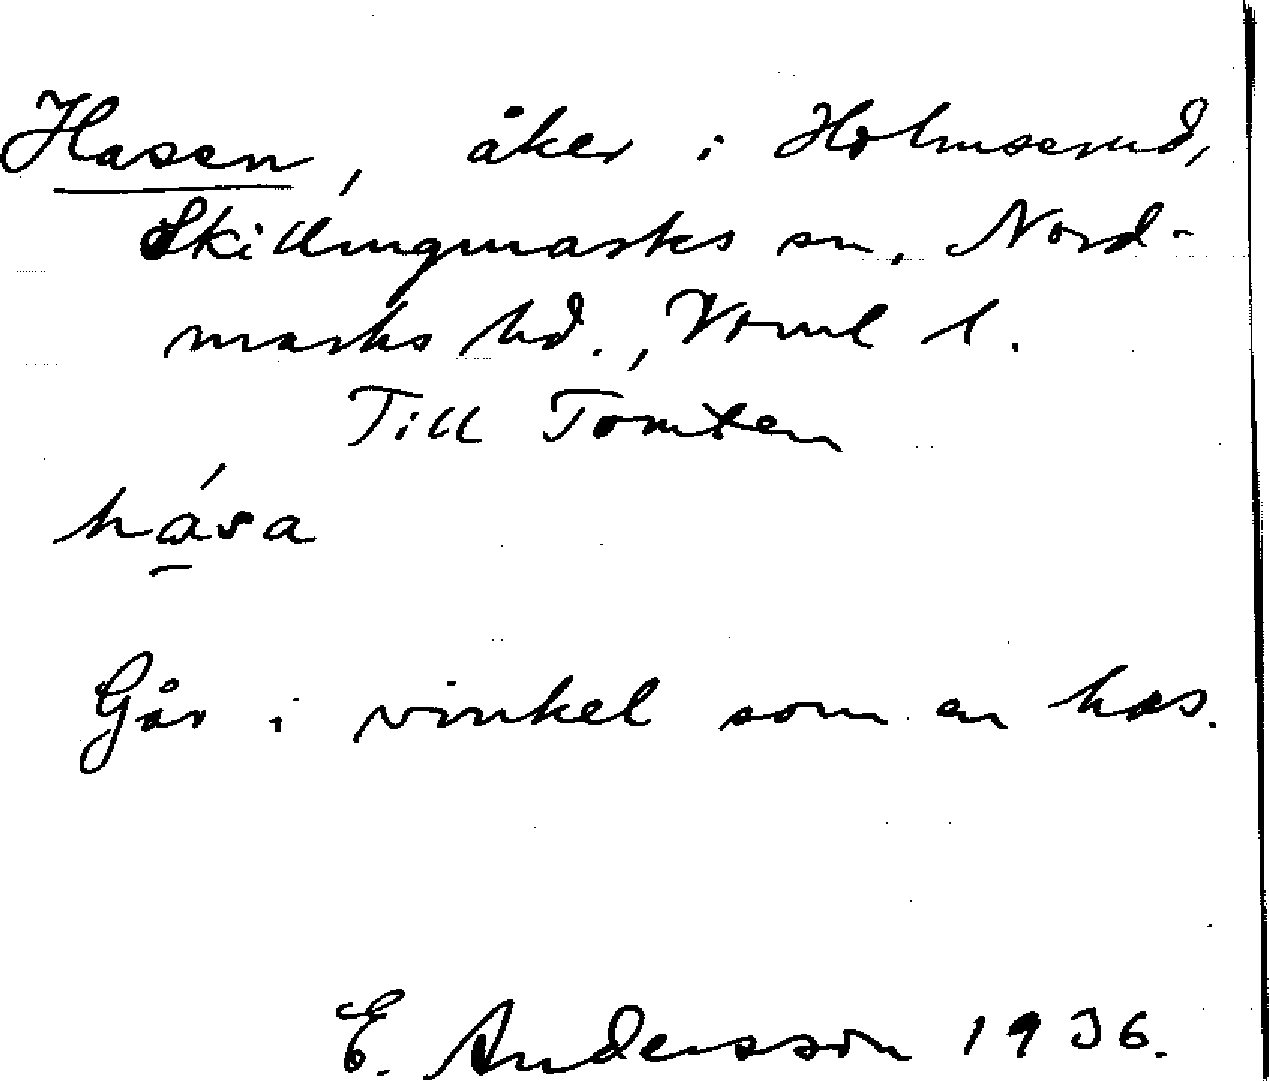 Hasen, åker i Holmserud,
Skillingmarks sn, Nord-
marks hd., Vrml l.
Till Tomten
hása
Går i vinkel som en has.
E. Andersson 1936.